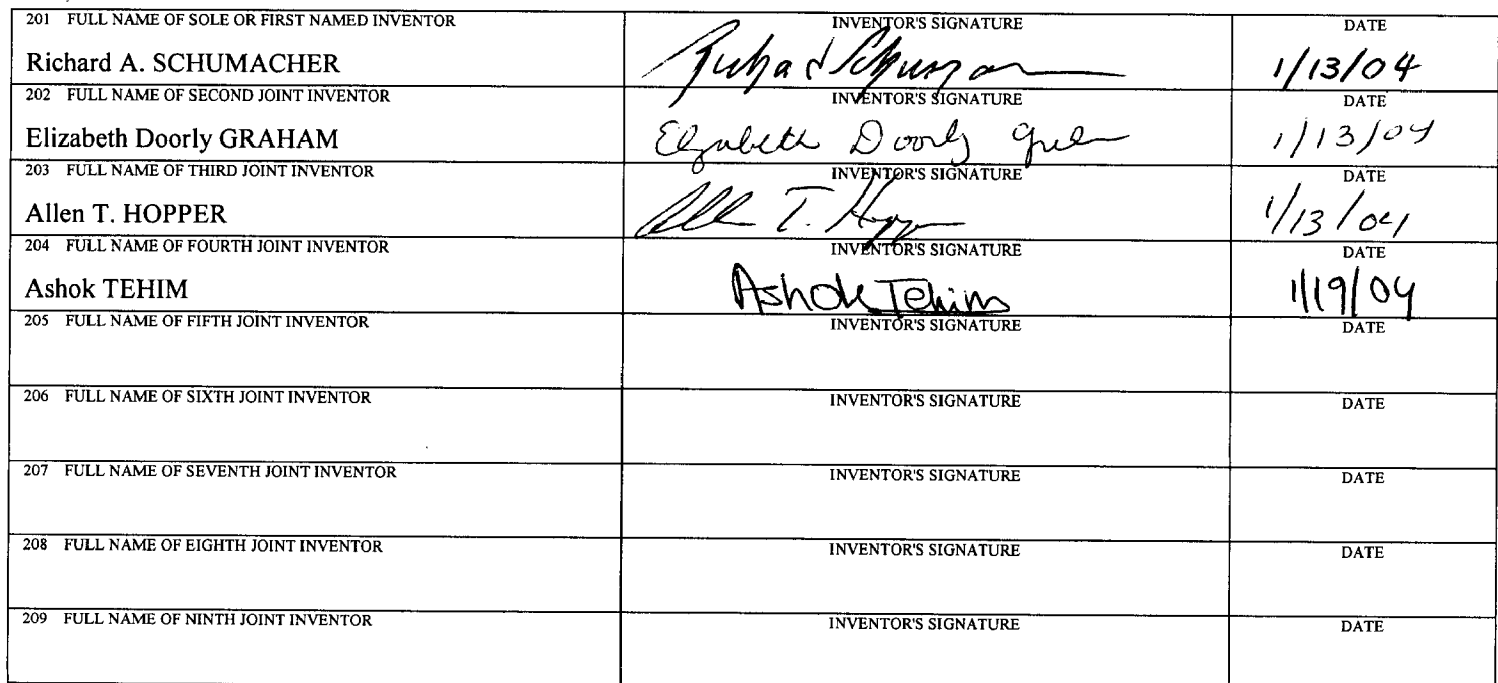 201 FULL NAME OF SOLE OR FIRST NAMED INVENTOR INVENTOR'S SIGNATURE DATE
Richard A. SCHUMACHER Richard Schuma 1/13/04
202 FULL NAME OF SECOND JOINT INVENTOR INVENTOR'S SIGNATURE DATE
Elizabeth Doorly GRAHAM Elizabeth Doorly 1/13/04
203 FULL NAME OF THIRD JOINT INVENTOR INVENTOR'S SIGNATURE DATE
Allen T. HOPPER Allen T. 1/13/04
204 FULL NAME OF FOURTH JOINT INVENTOR INVENTOR'S SIGNATURE DATE
Ashok TEHIM Ashok Tehim 1/19/04
205 FULL NAME OF FIFTH JOINT INVENTOR INVENTOR'S SIGNATURE DATE
206 FULL NAME OF SIXTH JOINT INVENTOR INVENTOR'S SIGNATURE DATE
207 FULL NAME OF SEVENTH JOINT INVENTOR INVENTOR'S SIGNATURE DATE
208 FULL NAME OF EIGHTH JOINT INVENTOR INVENTOR'S SIGNATURE DATE
209 FULL NAME OF NINTH JOINT INVENTOR INVENTOR'S SIGNATURE DATE